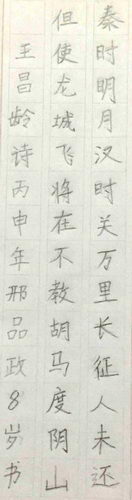 秦时明月汉时关万里长征人未还
但使龙城飞将在不教胡马度阴山
王昌龄诗丙申年邢品政8岁书